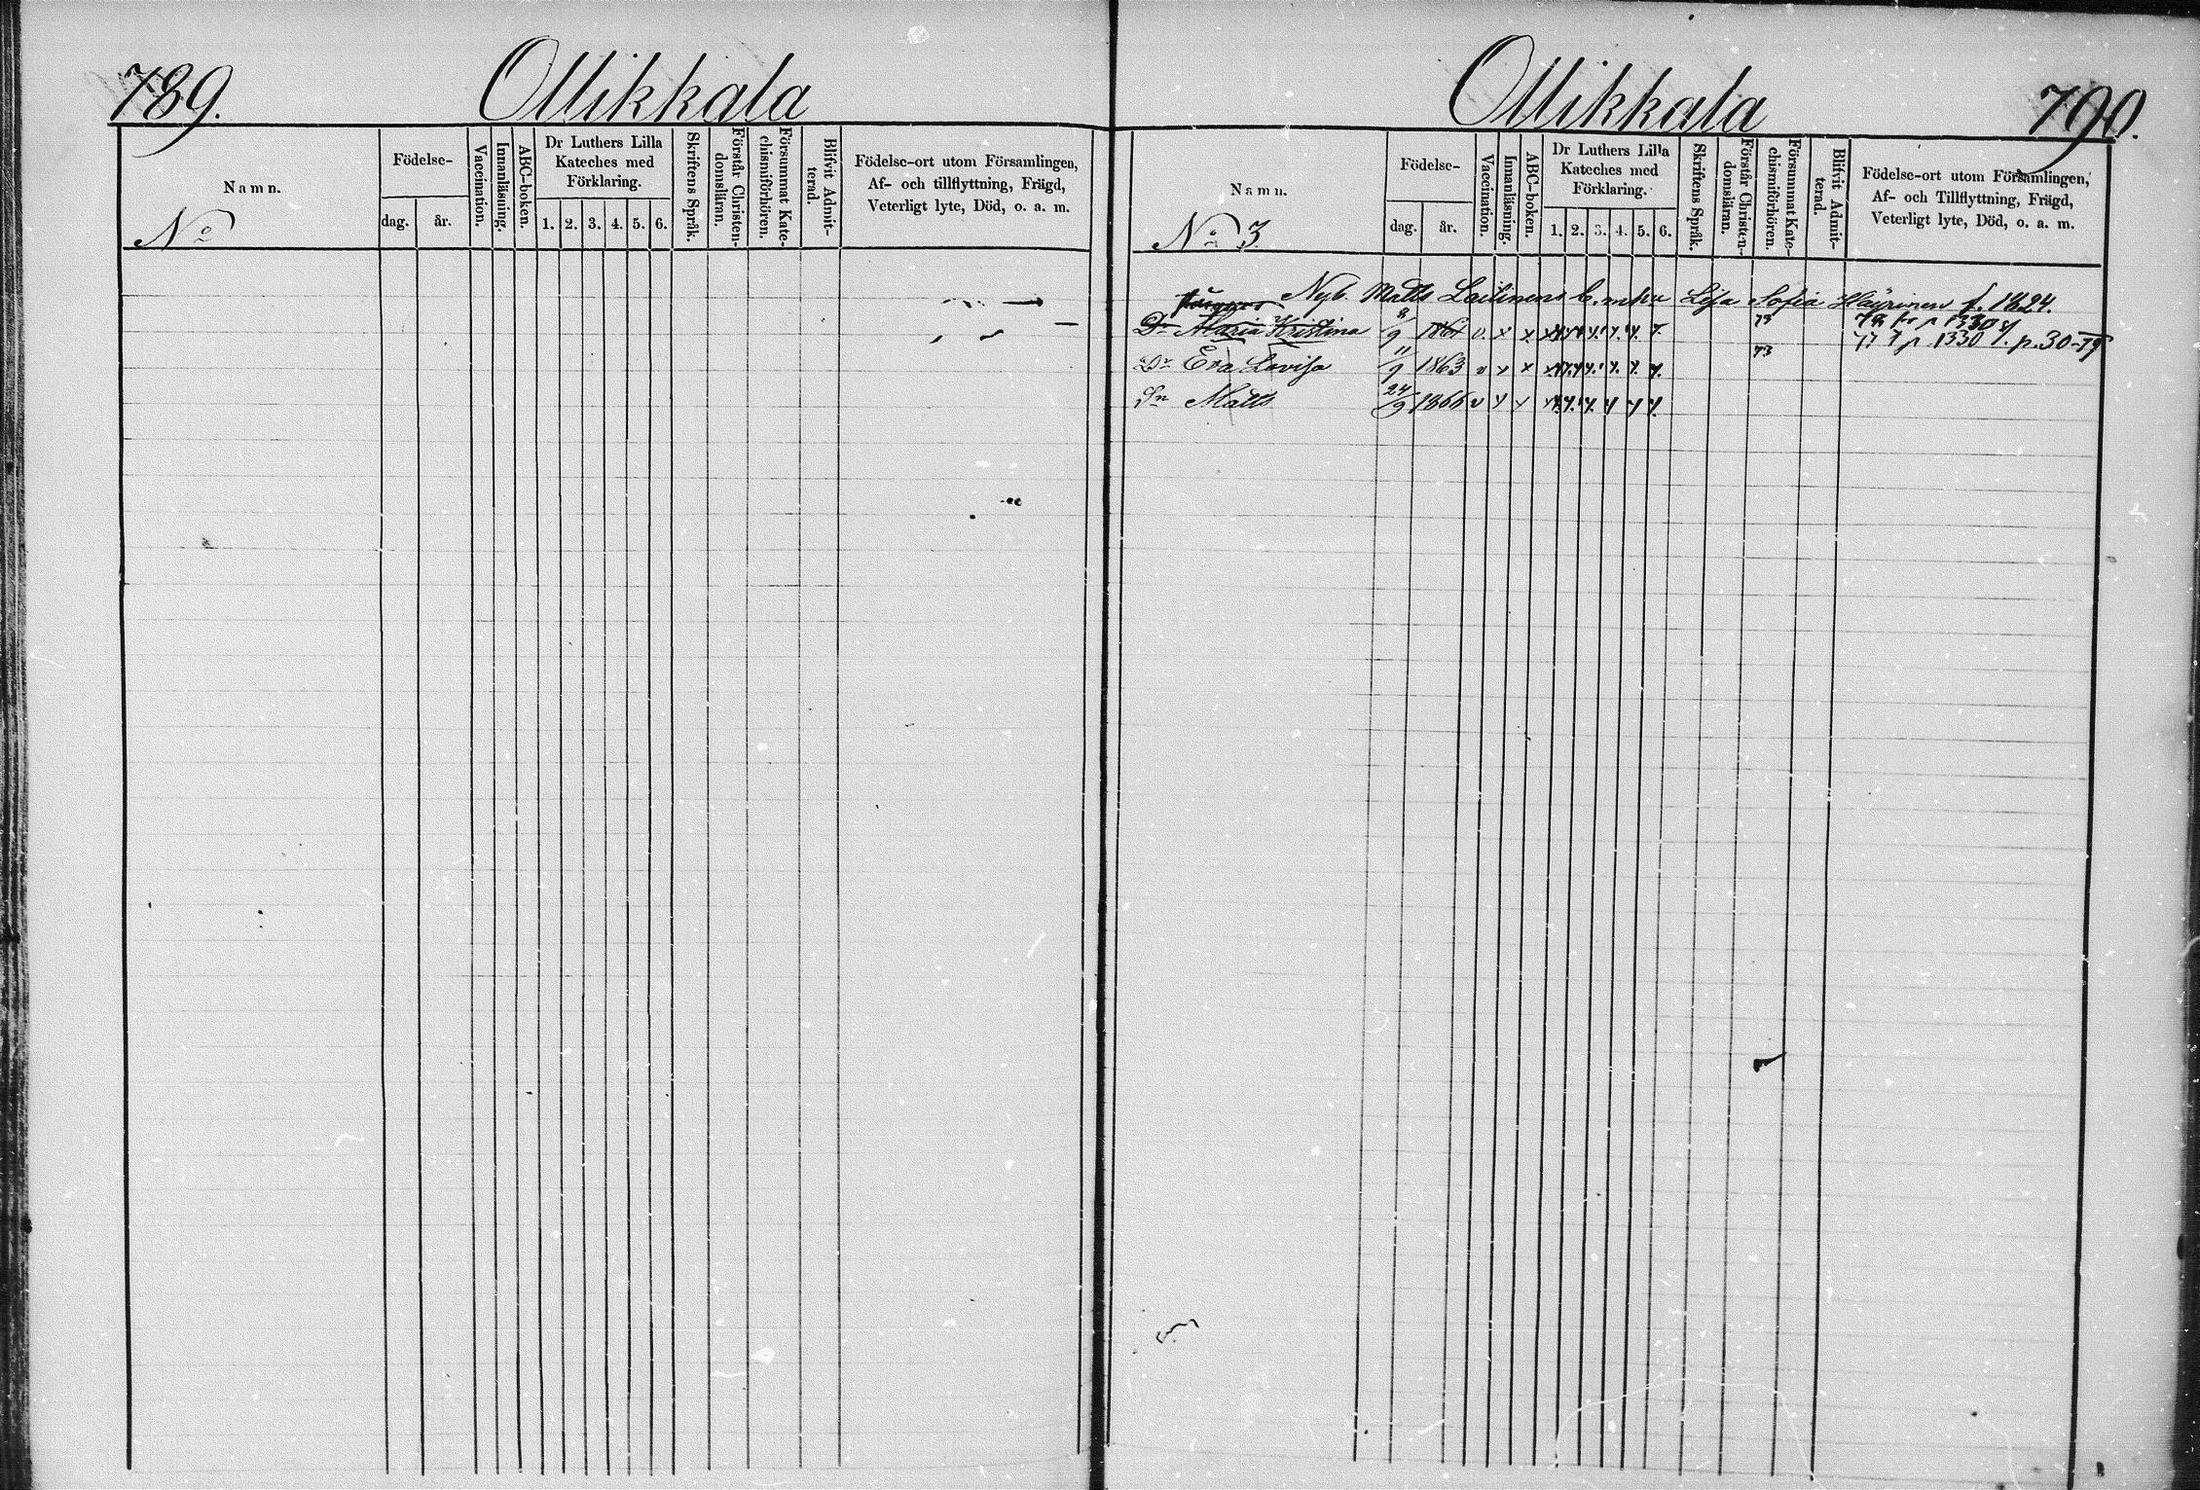 789.
Ollikkala
Namn.
No
Födelse-
dag.
år.
Vaccination.
Innanläsning.
ABC-boken.
Dr Luthers Lilla
Kateches med
Förklaring.
1. 2. 3. 4. 5. 6.
Skriftens Språk.
Förstår Christen-
domsläran.
Försummat Kate-
chismiförhören.
Blifvit Admit-
terad.
Födelse-ort utom Församlingen,
Af- och tillflyttning, Frägd,
Veterligt lyte, Död, o. a. m.
Ollikkala
790.
Namn.
No 3
Födelse-
dag.
år.
Vaccination.
Innanläsning.
ABC-boken.
Dr Luthers Lilla
Kateches med
Förklaring.
1. 2. 3. 4. 5. 6.
Skriftens Språk.
Förstår Christen-
domsläran.
Försummat Kate-
chismiförhören.
Blifvit Admit-
terad.
Födelse-ort utom Församlingen,
Af- och Tillflyttning, Frägd,
Veterligt lyte, Död, o. a. m.
Nyb. Matts Lailinens Sofia f. 1824.
Dr Maria Kristina 8/9 1861 v. x x 73
Dr Eva Lovisa 11/9 1863 v x x 73 p. 1330 p. 30-79
Sn Matts 24/9 1866 v